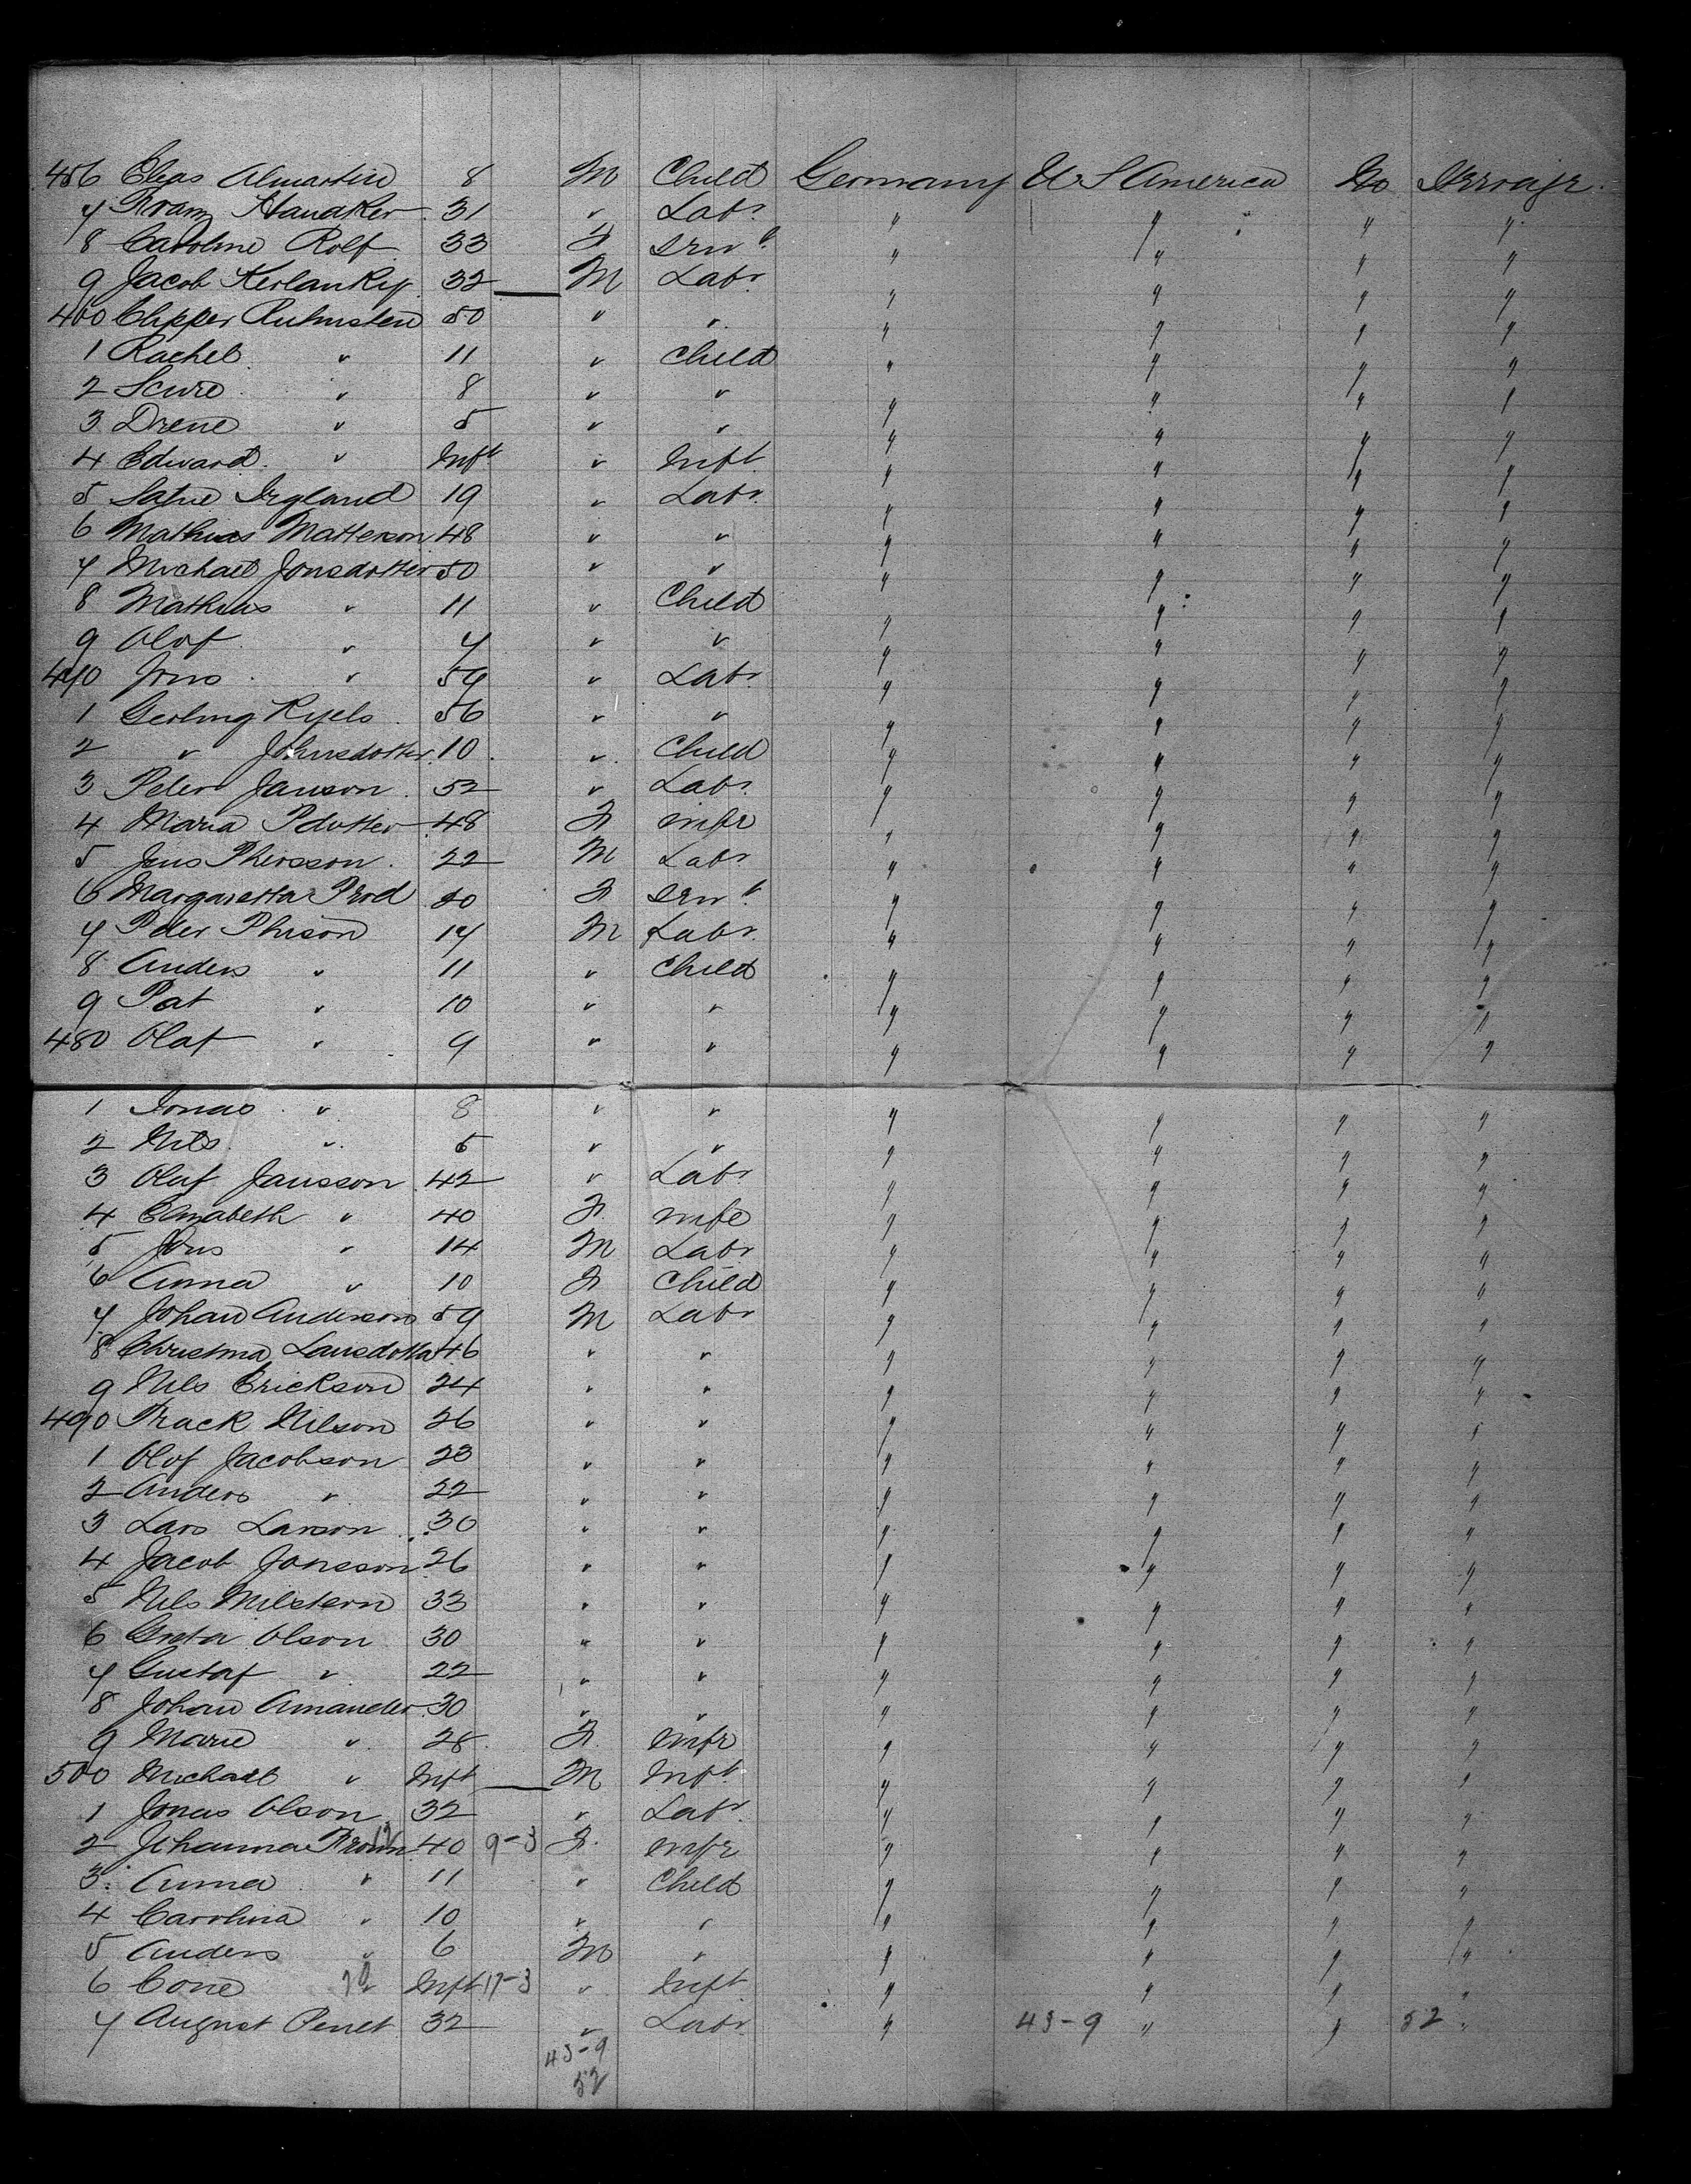 456 Elias Almartin 8 M Child Germany U S America No Strrage
7 Franz Handker 31 " Labr " " " "
8 Caroline Rolf 33 F Srvt " " " "
9 Jacob Kerlanky 32 M Labr " " " "
460 Clipper Rubinstein 50 " " " " " "
1 Rachel " 11 " Child " " " "
2 " 8 " " " " " "
3 Drene " 5 " " " " " "
4 Edward " Inft " Inft " " " "
5 19 " Labr " " " "
6 Mathias Matterson 48 " " " " " "
7 Michael Jonsdotter 50 " " " " " "
8 Mathias " 11 " Child " " " "
9 Olof " 7 " " " " " "
470 Jons " 59 " Labr " " " "
1 Gerling Kyels 56 " " " " " "
2 " Johnsdotter 10 " Child " " " "
3 Peter Janson 52 " Labr " " " "
4 Maria Pdotter 48 F wife " " " "
5 Jens Pherson 22 M Labr " " " "
6 Margaretta Prod 20 F Srvt " " " "
7 Peter Phrson 17 M Labr " " " "
8 Anders " 11 " Child " " " "
9 Pat " 10 " " " " " "
480 Olaf " 9 " " " " " "
1 Jonas " 8 " " " " " "
2 Nils " 5 " " " " " "
3 Oluf Jansson 42 " Labr " " " "
4 Elisabeth " 40 F wife " " " "
5 Jons " 14 M Labr " " " "
6 Anna " 10 F Child " " " "
7 Johan Anderson 59 M Labr " " " "
8 Christina Larsdotter 46 " " " " " "
9 Nils Erickson 24 " " " " " "
490 Prack Nilson 26 " " " " " "
1 Olof Jacobson 23 " " " " " "
2 Anders " 22 " " " " " "
3 Lars Larson 30 " " " " " "
4 Jacob Jonsson 26 " " " " " "
5 Nils Milstern 33 " " " " " "
6 Greta Olson 30 " " " " " "
7 Gustaf " 22 " " " " " "
8 Johan Amander 30 " " " " " "
9 Marie " 28 F wife " " " "
500 Michael " Inft M Inft " " " "
1 Jonas Olson 32 " Labr " " " "
2 Johanna Brown 12 40 9-3 F wife " " " "
3 Anna " 11 " Child " " " "
4 Carolina " 10 " " " " " "
5 Anders " 6 M " " " " "
6 Cone " Inft 17-3 " Inft " " " "
7 August Penet 32 " Labr " 43-9 " " 52 "
43-9
52